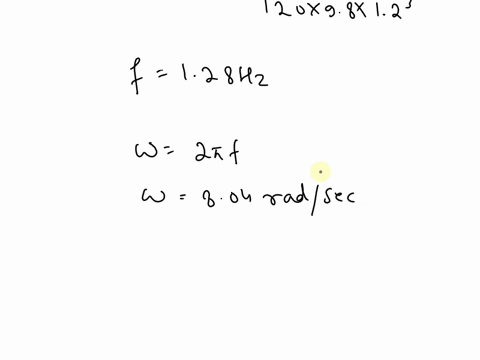 120×9.8×1.25
f = 1.28Hz
ω = 2πf
ω = 8.04 rad/sec